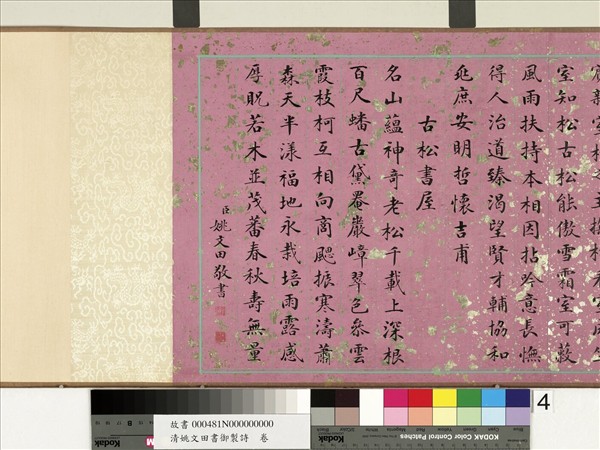 室知松古松能傲雪霜室可蔽
風雨扶持本相因拈吟意長憮
得人治道臻渴望賢才輔協和
兆庶安明哲懷吉甫
古松書屋
名山蘊神奇老松千載上深根
百尺蟠古黛罨巖嶂翠色叅雲
霞枝柯互相向商飇振寒濤蕭
森天半漾福地永栽培雨露感
厚貺若木並茂蕃春秋壽無量
臣姚文田敬書
故書 000481N000000000
清姚文田書御製詩 卷
Kodak
KODAK Color Control Patches
4